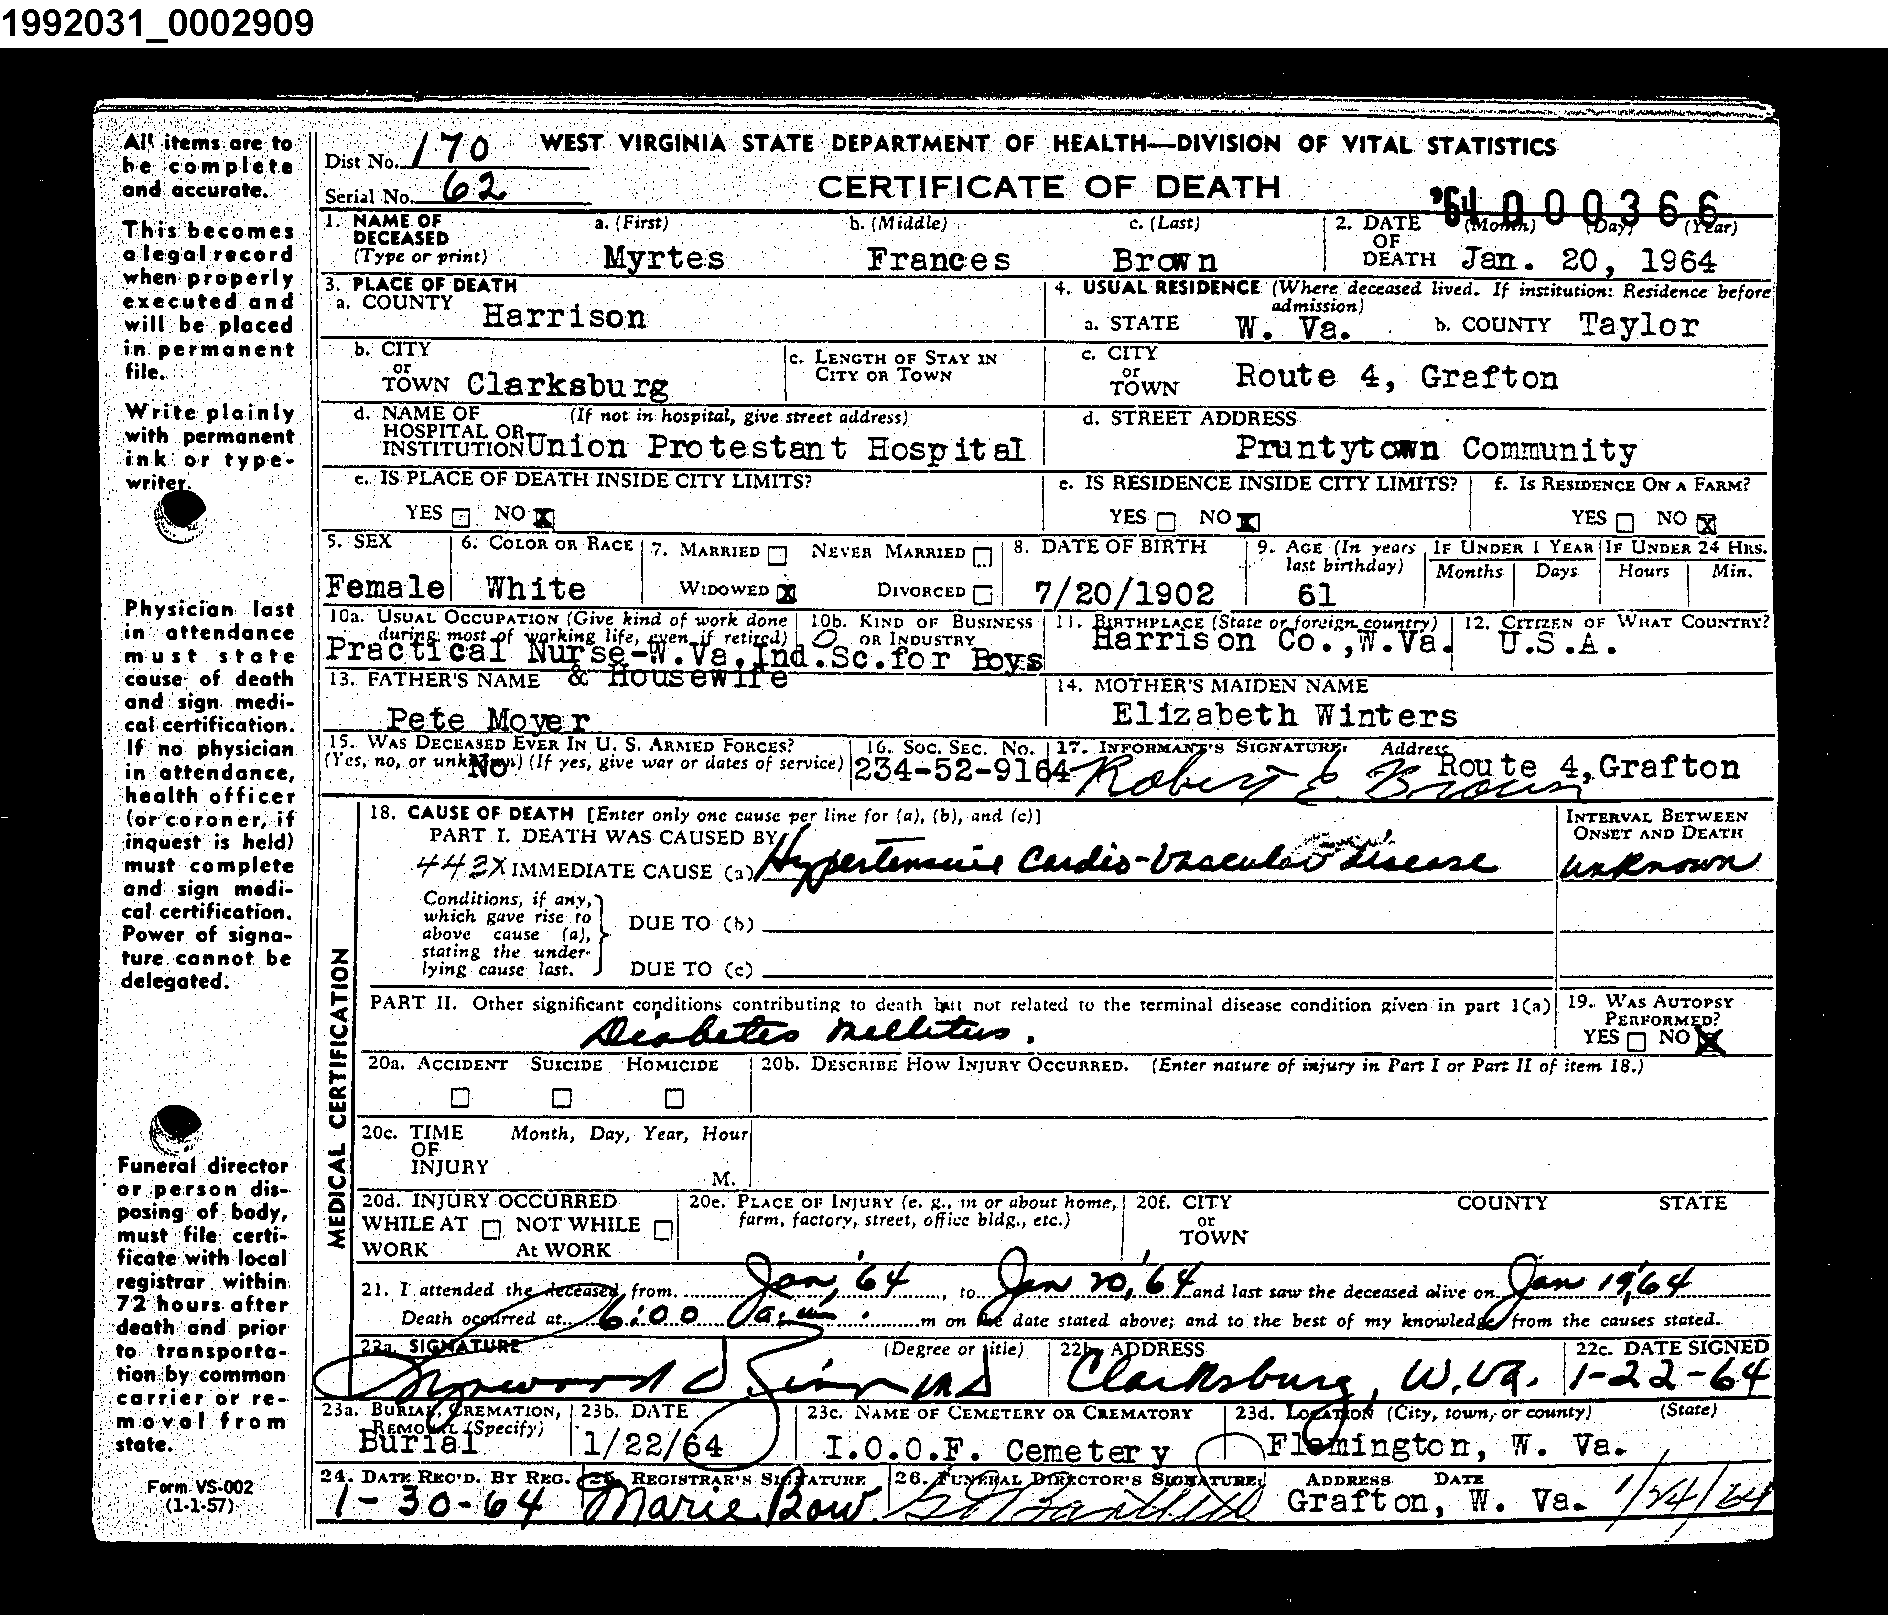 1992031_0002909
All items are to
be complete
and accurate.
This becomes
a legal record
when properly
executed and
will be placed
in permanent
file.
Write plainly
with permanent
ink or type-
writer.
Physician last
in attendance
must state
cause of death
and sign medi-
cal certification.
If no physician
in attendance,
health officer
(or coroner, if
inquest is held)
must complete
and sign medi-
cal certification.
Power of signa-
ture cannot be
delegated.
Funeral director
or person dis-
posing of body,
must file certi-
ficate with local
registrar within
72 hours after
death and prior
to transporta-
tion by common
carrier or re-
moval from
state.
Form VS-002
(1-1-57)
Dist No. 170 WEST VIRGINIA STATE DEPARTMENT OF HEALTH—DIVISION OF VITAL STATISTICS
Serial No. 62 CERTIFICATE OF DEATH '64 000366
1. NAME OF DECEASED (Type or print) a. (First) b. (Middle) c. (Last) 2. DATE OF DEATH (Month) (Day) (Year)
Myrtes Frances Brown Jan. 20, 1964
3. PLACE OF DEATH
a. COUNTY Harrison
4. USUAL RESIDENCE (Where deceased lived. If institution: Residence before admission)
a. STATE W. Va. b. COUNTY Taylor
b. CITY or TOWN Clarksburg c. LENGTH OF STAY IN CITY OR TOWN
c. CITY or TOWN Route 4, Grafton
d. NAME OF HOSPITAL OR INSTITUTION (If not in hospital, give street address) Union Protestant Hospital
d. STREET ADDRESS Pruntytown Community
e. IS PLACE OF DEATH INSIDE CITY LIMITS?
YES NO X
e. IS RESIDENCE INSIDE CITY LIMITS? f. IS RESIDENCE ON A FARM?
YES NO X YES NO X
5. SEX 6. COLOR OR RACE 7. MARRIED NEVER MARRIED 8. DATE OF BIRTH 9. AGE (In years last birthday) IF UNDER 1 YEAR IF UNDER 24 HRS.
Months Days Hours Min.
Female White WIDOWED X DIVORCED 7/20/1902 61
10a. USUAL OCCUPATION (Give kind of work done during most of working life, even if retired) 10b. KIND OF BUSINESS OR INDUSTRY 11. BIRTHPLACE (State or foreign country) 12. CITIZEN OF WHAT COUNTRY?
Practical Nurse-W.Va.Ind.Sc.for Boys Harrison Co.,W.Va. U.S.A.
& Housewife
13. FATHER'S NAME 14. MOTHER'S MAIDEN NAME
Pete Moyer Elizabeth Winters
15. WAS DECEASED EVER IN U. S. ARMED FORCES? 16. SOC. SEC. No. 17. INFORMANT'S SIGNATURE Address
(Yes, no, or unknown) (If yes, give war or dates of service)
No 234-52-9164 Robert E Brown Route 4, Grafton
MEDICAL CERTIFICATION
18. CAUSE OF DEATH [Enter only one cause per line for (a), (b), and (c)] INTERVAL BETWEEN ONSET AND DEATH
PART I. DEATH WAS CAUSED BY
443X IMMEDIATE CAUSE (a) Hypertensive Cardio-Vascular disease unknown
Conditions, if any, which gave rise to above cause (a), stating the under-lying cause last.
DUE TO (b)
DUE TO (c)
PART II. Other significant conditions contributing to death but not related to the terminal disease condition given in part I(a) 19. WAS AUTOPSY PERFORMED?
Diabetes Mellitus. YES NO X
20a. ACCIDENT SUICIDE HOMICIDE 20b. DESCRIBE HOW INJURY OCCURRED. (Enter nature of injury in Part I or Part II of item 18.)
20c. TIME OF INJURY Month, Day, Year, Hour
M.
20d. INJURY OCCURRED 20e. PLACE OF INJURY (e. g., in or about home, farm, factory, street, office bldg., etc.) 20f. CITY or TOWN COUNTY STATE
WHILE AT WORK NOT WHILE At WORK
21. I attended the deceased from Jan, '64, to Jan 20, '64 and last saw the deceased alive on Jan 19, '64
Death occurred at 6:00 a.m. m on the date stated above; and to the best of my knowledge from the causes stated.
22a. SIGNATURE (Degree or title) 22b. ADDRESS 22c. DATE SIGNED
MD Clarksburg, W.Va. 1-22-64
23a. BURIAL, CREMATION, REMOVAL (Specify) 23b. DATE 23c. NAME OF CEMETERY OR CREMATORY 23d. LOCATION (City, town, or county) (State)
Burial 1/22/64 I.O.O.F. Cemetery Flemington, W. Va.
24. DATE REC'D. BY REG. 25. REGISTRAR'S SIGNATURE 26. FUNERAL DIRECTOR'S SIGNATURE ADDRESS DATE
1-30-64 Marie Bow Grafton, W. Va. 1/24/64